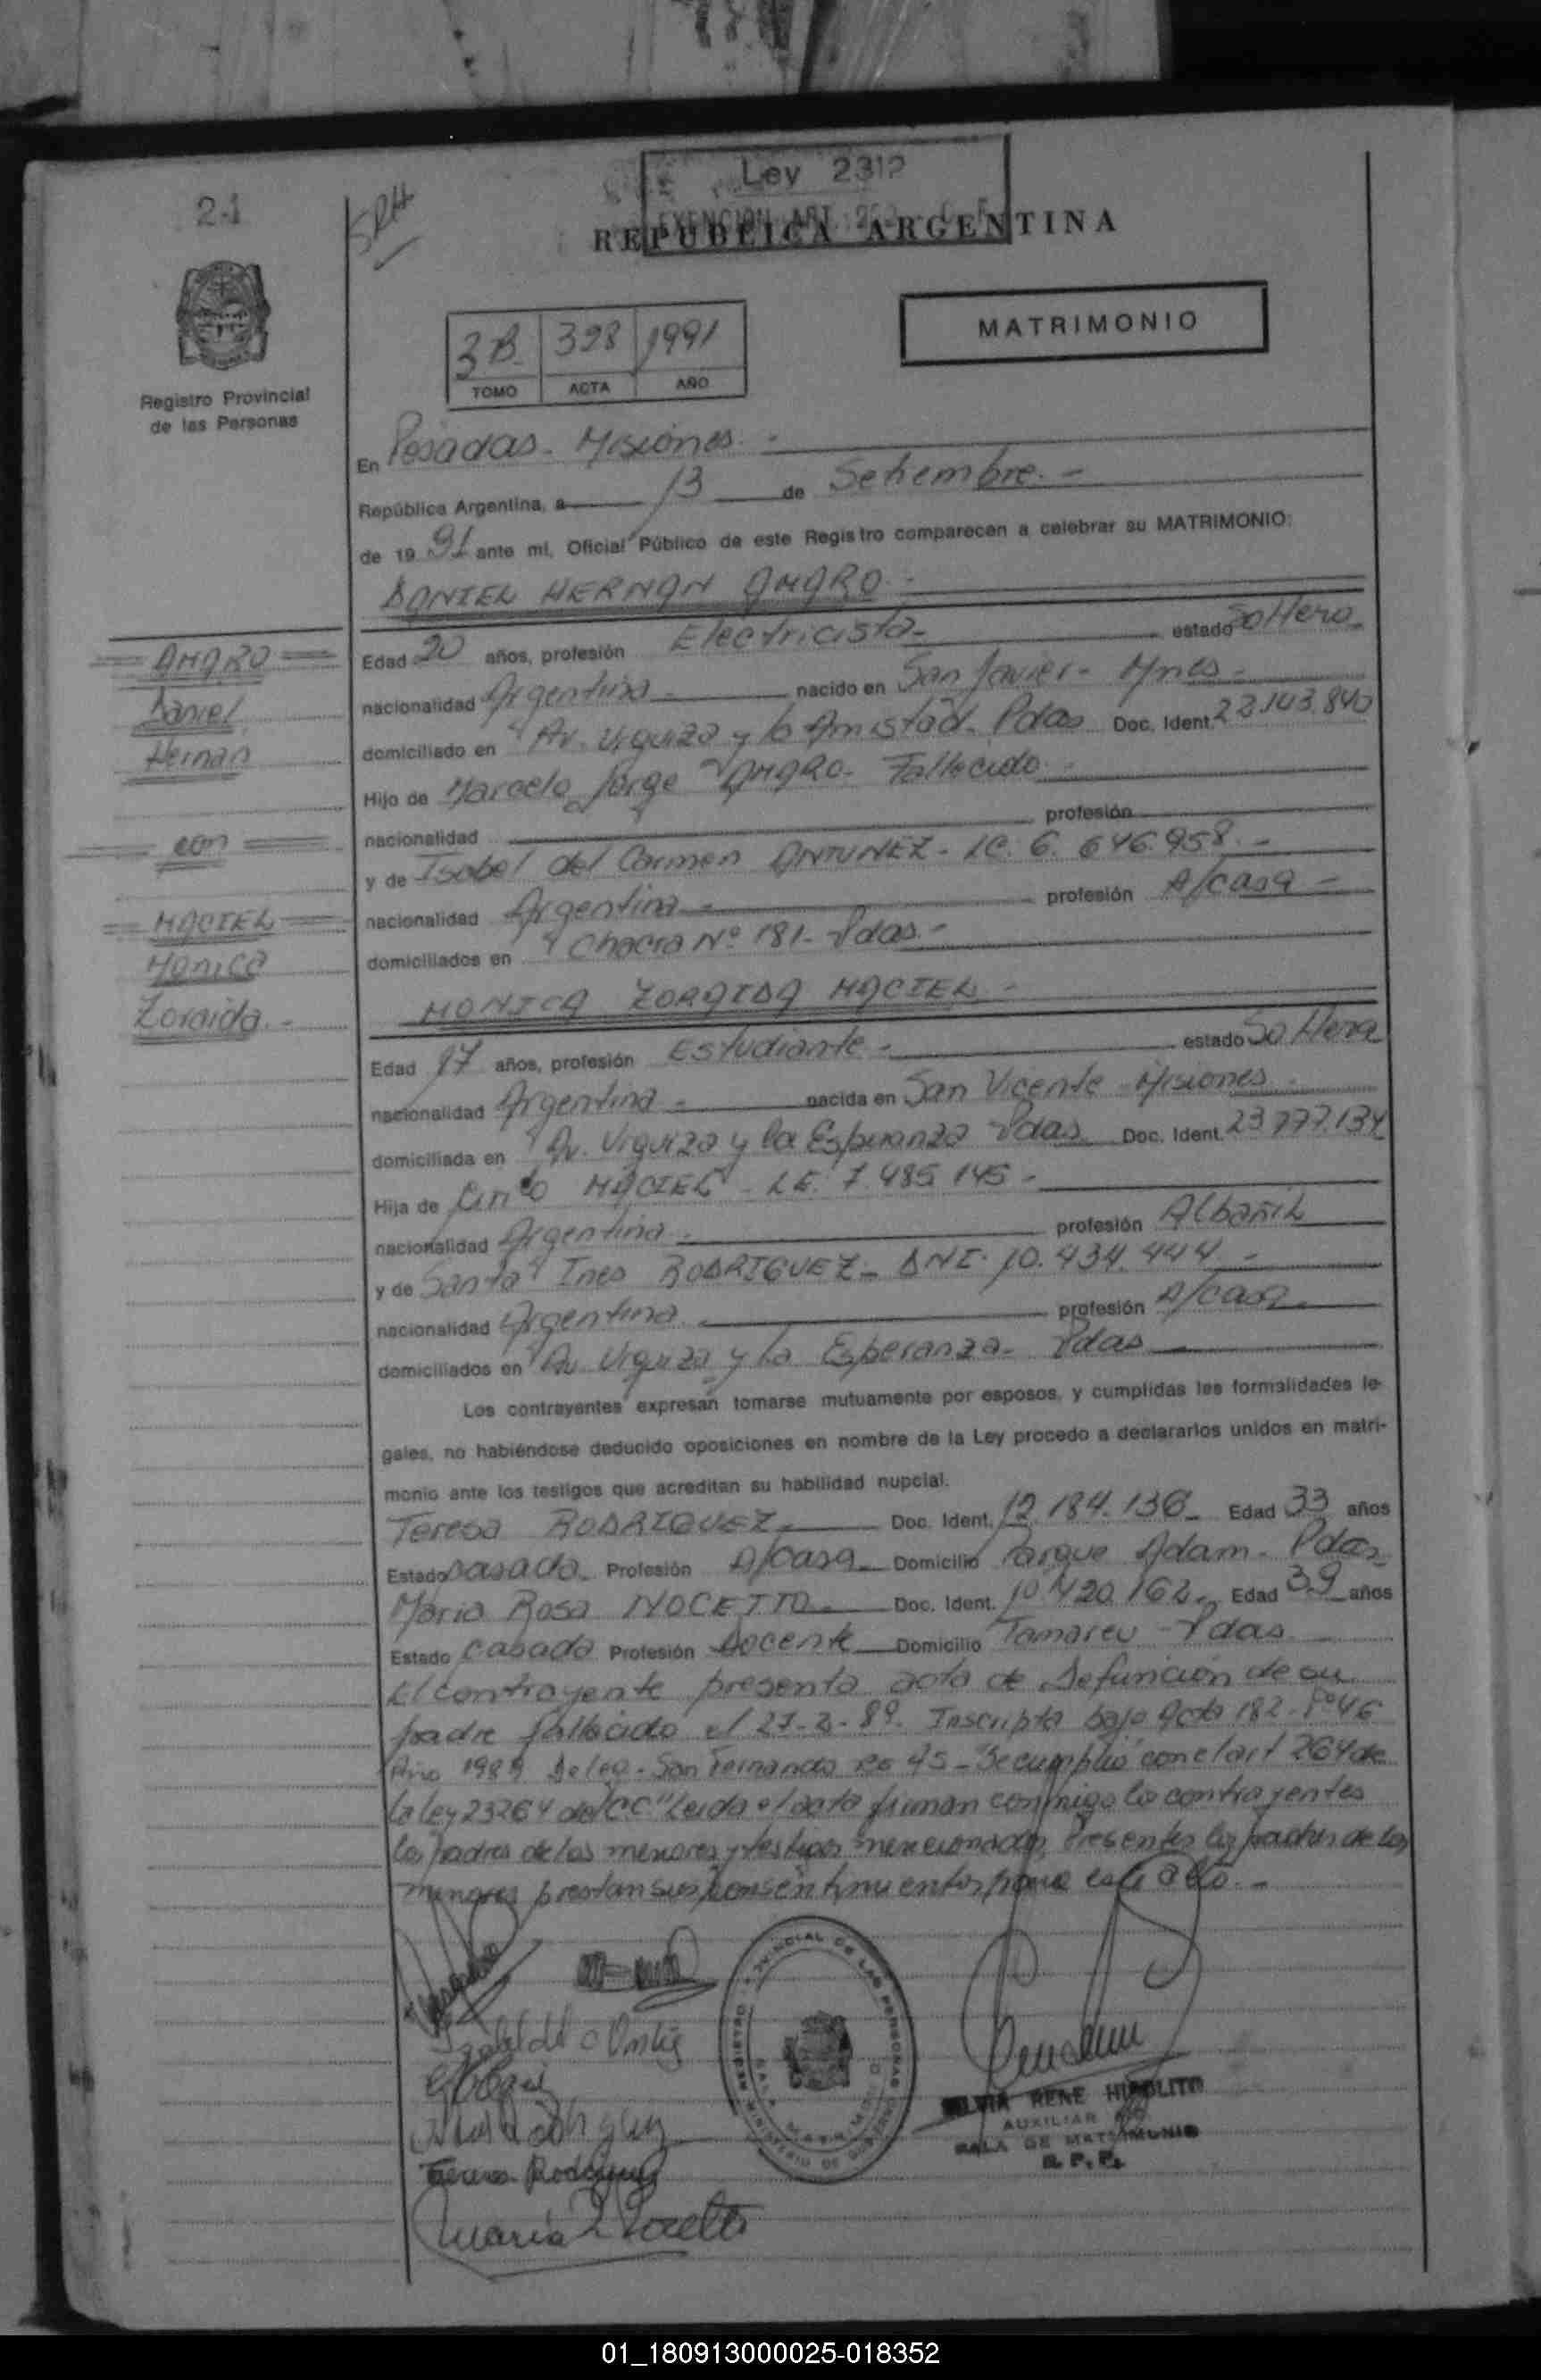 Ley 2312
EXENCION ART
REPUBLICA ARGENTINA
21
MATRIMONIO
3B 398 1991
TOMO ACTA AÑO
Registro Provincial
de las Personas
En Posadas - Misiones. -
República Argentina, a 13 de Setiembre. -
de 19 91 ante mi, Oficial Público de este Registro comparecen a celebrar su MATRIMONIO:
DANIEL HERNAN AMARO. -
Edad 20 años, profesión Electricista - estado Soltero -
nacionalidad Argentina - nacido en San Javier - Mnes -
domiciliado en Av. Urquiza y la Amistad. Pdas Doc. Ident. 22.143.840
Hijo de Marcelo Jorge AMARO - Fallecido. -
nacionalidad profesión
y de Isabel del Carmen ANTUNEZ - LC. 6. 646.958. -
nacionalidad Argentina - profesión A/casa -
domiciliados en Chacra Nº 181 - Pdas. -
MONICA ZORAIDA MACIEL -
Edad 17 años, profesión Estudiante - estado Soltera
nacionalidad Argentina - nacida en San Vicente - Misiones -
domiciliada en Av. Urquiza y la Esperanza Pdas Doc. Ident. 23 777.134
Hija de MACIEL - LE. 7.485 145 -
nacionalidad Argentina - profesión Albañil
y de Santa Ines RODRIGUEZ - DNI. 10.434.444. -
nacionalidad Argentina - profesión A/casa -
domiciliados en Av. Urquiza y la Esperanza - Pdas
Los contrayentes expresan tomarse mutuamente por esposos, y cumplidas las formalidades le-
gales, no habiéndose deducido oposiciones en nombre de la Ley procedo a declararlos unidos en matri-
monio ante los testigos que acreditan su habilidad nupcial.
Teresa RODRIGUEZ - Doc. Ident. 12.184.136 - Edad 33 años
Estado casada - Profesión A/casa - Domicilio Parque Adam - Pdas -
Maria Rosa NOCETTO - Doc. Ident. 10.420.162 - Edad 39 años
Estado casada Profesión Docente Domicilio Tamareu - Pdas
El contrayente presenta acta de Defunción de su
padre fallecido el 27-2-89. Inscripta bajo Acta 182 - Tº 4G
Año 1989 Deleg. San Fernando Bs As - Se cumplió con el art 264 de
la ley 23264 del CC." Leida el acta firman conmigo los contrayentes
los padres de los menores y testigos mencionados, Presentes los padres de los
menores prestan sus consentimientos para este acto. -
AMARO
Daniel
Hernan
con
MACIEL
Monica
Zoraida. -
Teresa Rodriguez
Maria R Nocetto
SILVIA RENE HIPOLITO
AUXILIAR
SALA DE MATRIMONIO
R. P. P.
01_180913000025-018352